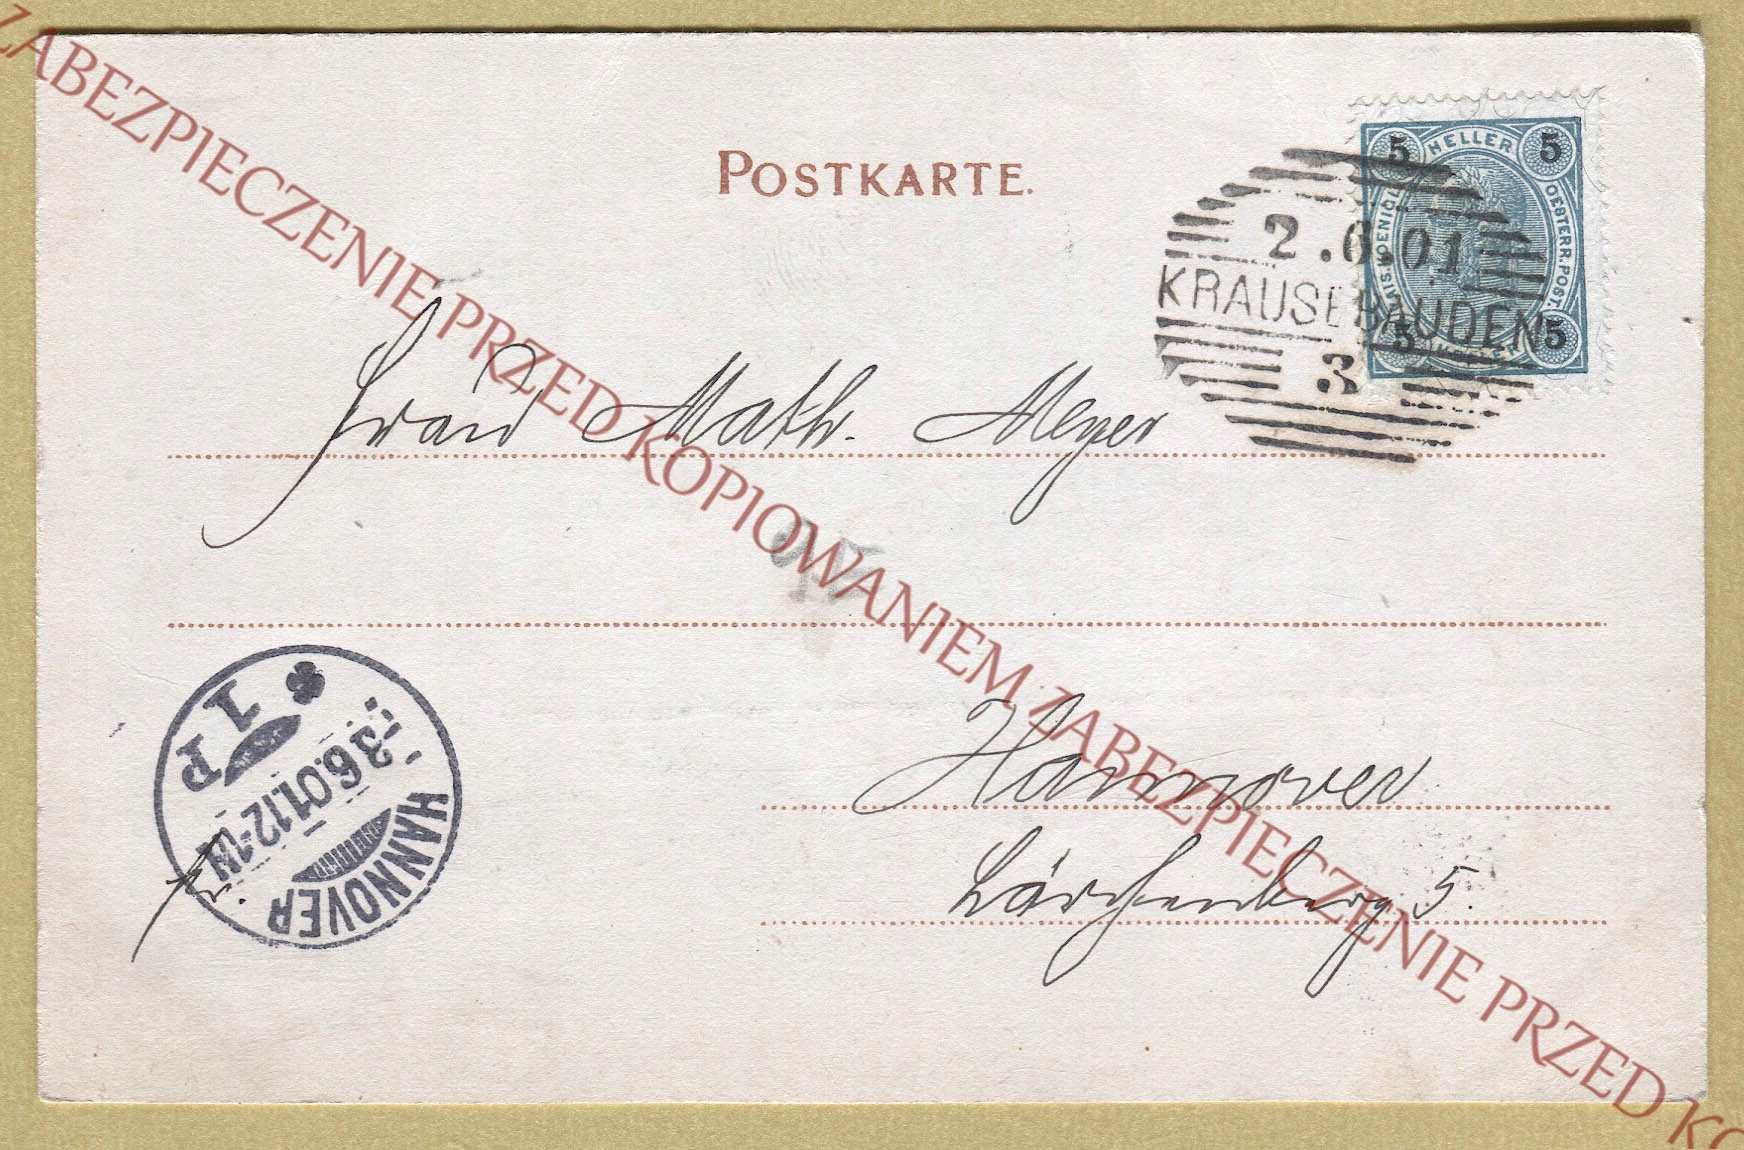 POSTKARTE.
5 HELLER 5
KAIS. KOENIGL. OESTERR. POST.
5 HELLER 5
2.6.01
KRAUSEBAUDEN
3
Frau Math. Meyer
Hannover
Lärchenberg 5.
HANNOVER
1 P
-3.6.01.12-1N
fr.
ZABEZPIECZENIE PRZED KOPIOWANIEM ZABEZPIECZENIE PRZED KO